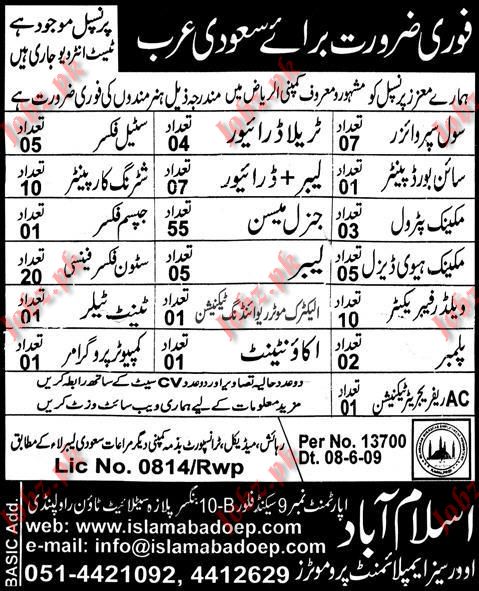 فوری ضرورت برائے سعودی عرب
پرنسپل موجود ہے
ٹیسٹ انٹرویو جاری ہیں
ہمارے معزز پرنسپل کو مشہور و معروف کمپنی الریاض میں مندرجہ ذیل ہنرمندوں کی فوری ضرورت ہے
سول سپروائزر تعداد 07 ٹریلا ڈرائیور تعداد 04 سٹیل فکسر تعداد 05
سائن بورڈ پینٹر تعداد 01 لیبر + ڈرائیور تعداد 07 شٹرنگ کارپینٹر تعداد 10
مکینک پٹرول تعداد 03 جنرل میسن تعداد 55 جپسم فکسر تعداد 01
مکینک ہیوی ڈیزل تعداد 05 لیبر تعداد 05 سٹون فکسر فینسی تعداد 20
ویلڈر فیبریکیٹر تعداد 10 الیکٹرک موٹر ریوائنڈنگ ٹیکنیشن تعداد 01 ٹینٹ ٹیلر تعداد 01
پلمبر تعداد 02 اکاؤنٹینٹ تعداد 01 کمپیوٹر پروگرامر تعداد 01
AC ریفریجریٹر ٹیکنیشن تعداد 01
دو عدد حالیہ تصاویر اور دو عدد CV سیٹ کے ساتھ رابطہ کریں
مزید معلومات کے لیے ہماری ویب سائٹ وزٹ کریں
رہائش، میڈیکل، ٹرانسپورٹ بذمہ کمپنی دیگر مراعات سعودی لیبر لاء کے مطابق
Lic No. 0814/Rwp
Per No. 13700
Dt. 08-6-09
اسلام آباد
اوورسیز ایمپلائمنٹ پروموٹرز
اپارٹمنٹ نمبر 9 سیکنڈ فلور 10-B کنگسر پلازہ سیٹلائیٹ ٹاؤن راولپنڈی
web: www.islamabadoep.com
e-mail: info@islamabadoep.com
051-4421092, 4412629
BASIC Add.
Jobz.pk